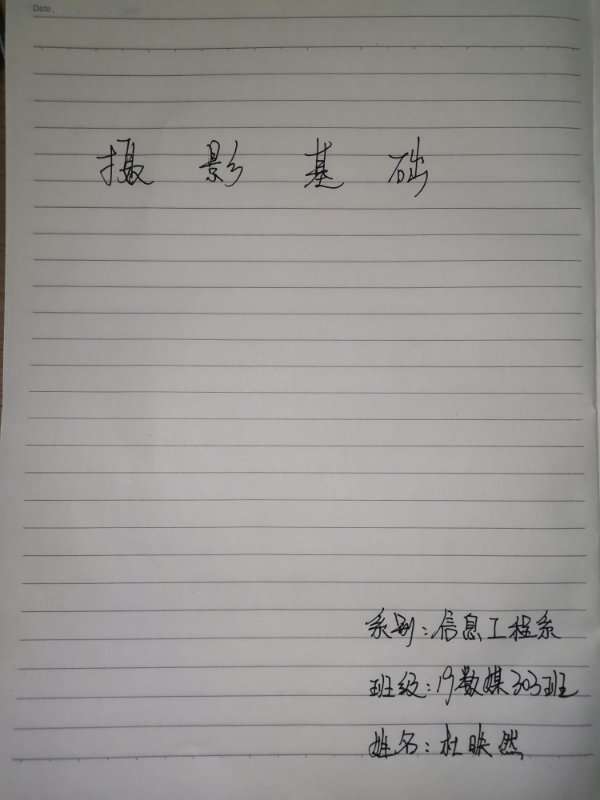 Date.
摄影基础
系别:信息工程系
班级:19数媒303班
姓名:杜焕然